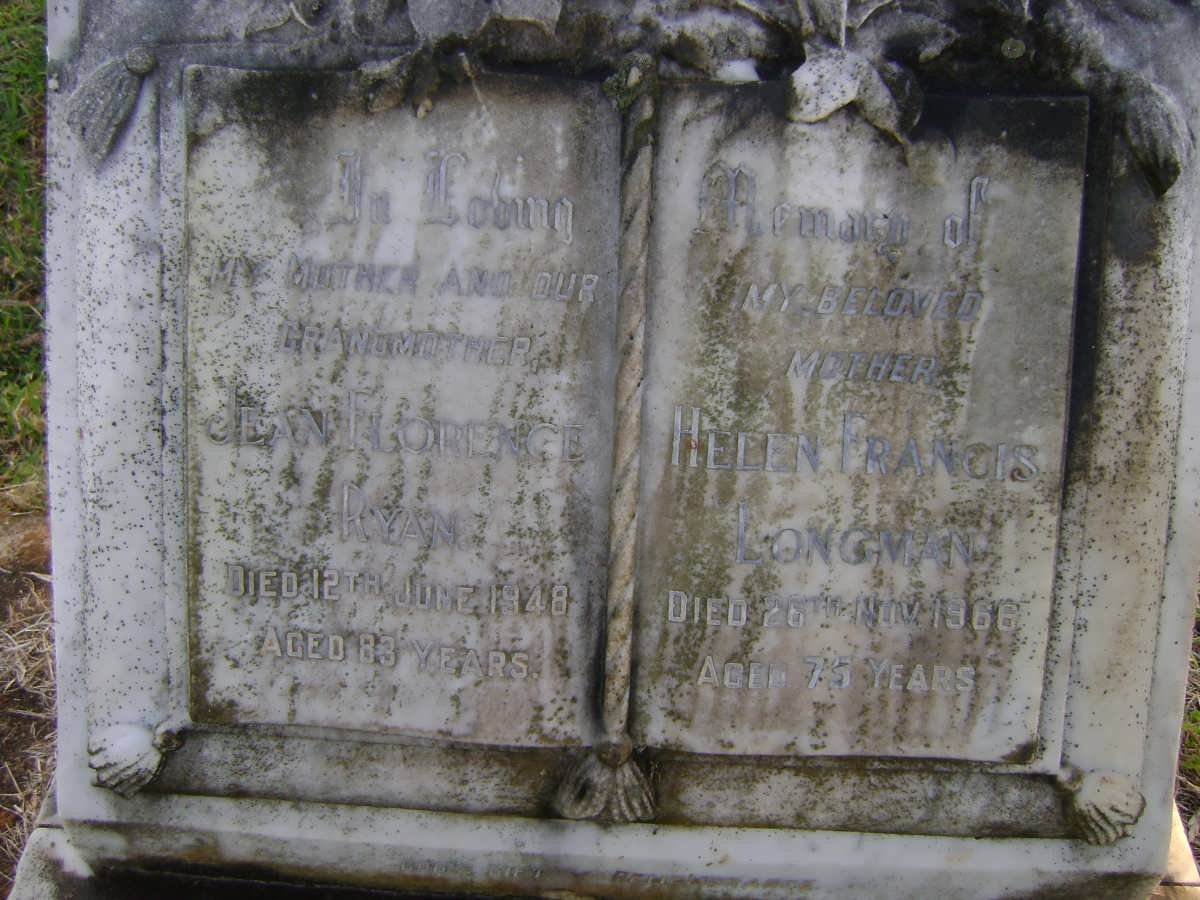 In Loving
MY MOTHER AND OUR
GRANDMOTHER,
JEAN FLORENCE
RYAN.
DIED 12TH JUNE 1948
AGED 83 YEARS.
Memory of
MY BELOVED
MOTHER
HELEN FRANCIS
LONGMAN
DIED 26TH NOV. 1966
AGED 75 YEARS